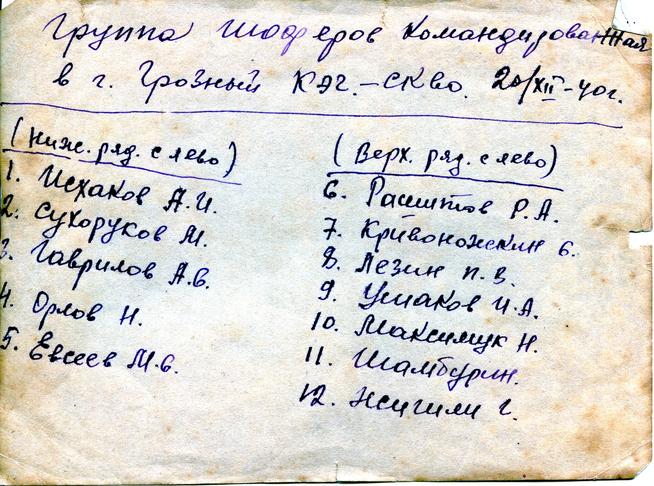 Группа шоферов командированная
в г. Грозный КЭГ.-СКво. 20/XII-40г.
(Ниж. ряд. с лево)
1. Исхаков А.И.
2. Сухоруков М.
3. Гаврилов А.В.
4. Орлов Н.
5. Евсеев М.В.
(Верх. ряд. с лево)
6. Р.А.
7. Кривоножкин Б.
8. Лезин П.В.
9. Ушаков И.А.
10. Максимцук Н.
11. Шамбурин.
12. Жигили Г.